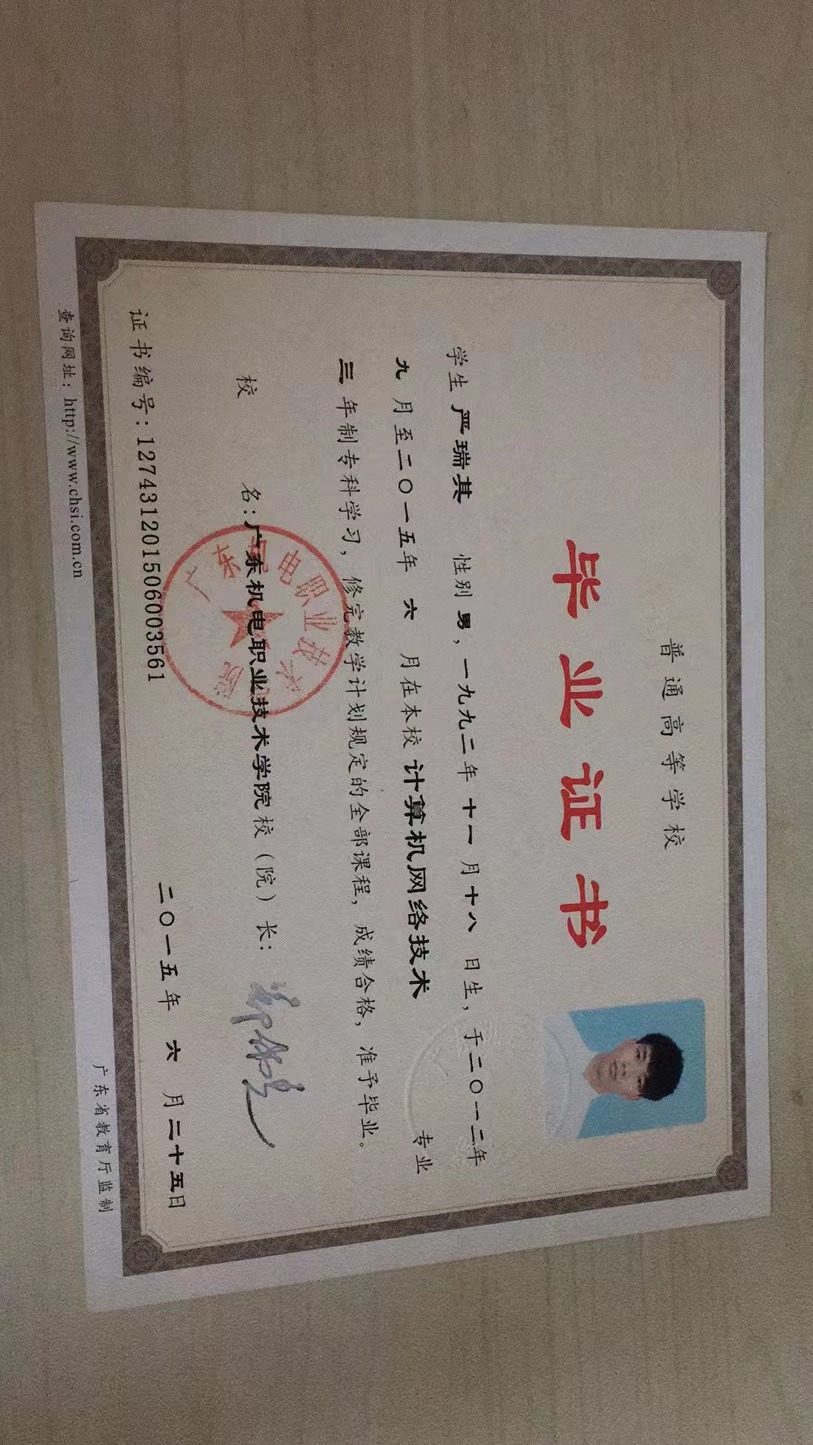 普通高等学校
毕业证书
学生 严瑞其 性别 男，一九九二年 十一 月 十八 日生，于二〇一二年
九 月至二〇一五年 六 月在本校 计算机网络技术 专业
三 年制专科学习，修完教学计划规定的全部课程，成绩合格，准予毕业。
校 名：广东机电职业技术学院 校（院）长：
广东机电职业技术学院
证书编号：127431201506003561 二〇一五年 六 月 二十五日
查询网址：http://www.chsi.com.cn 广东省教育厅监制